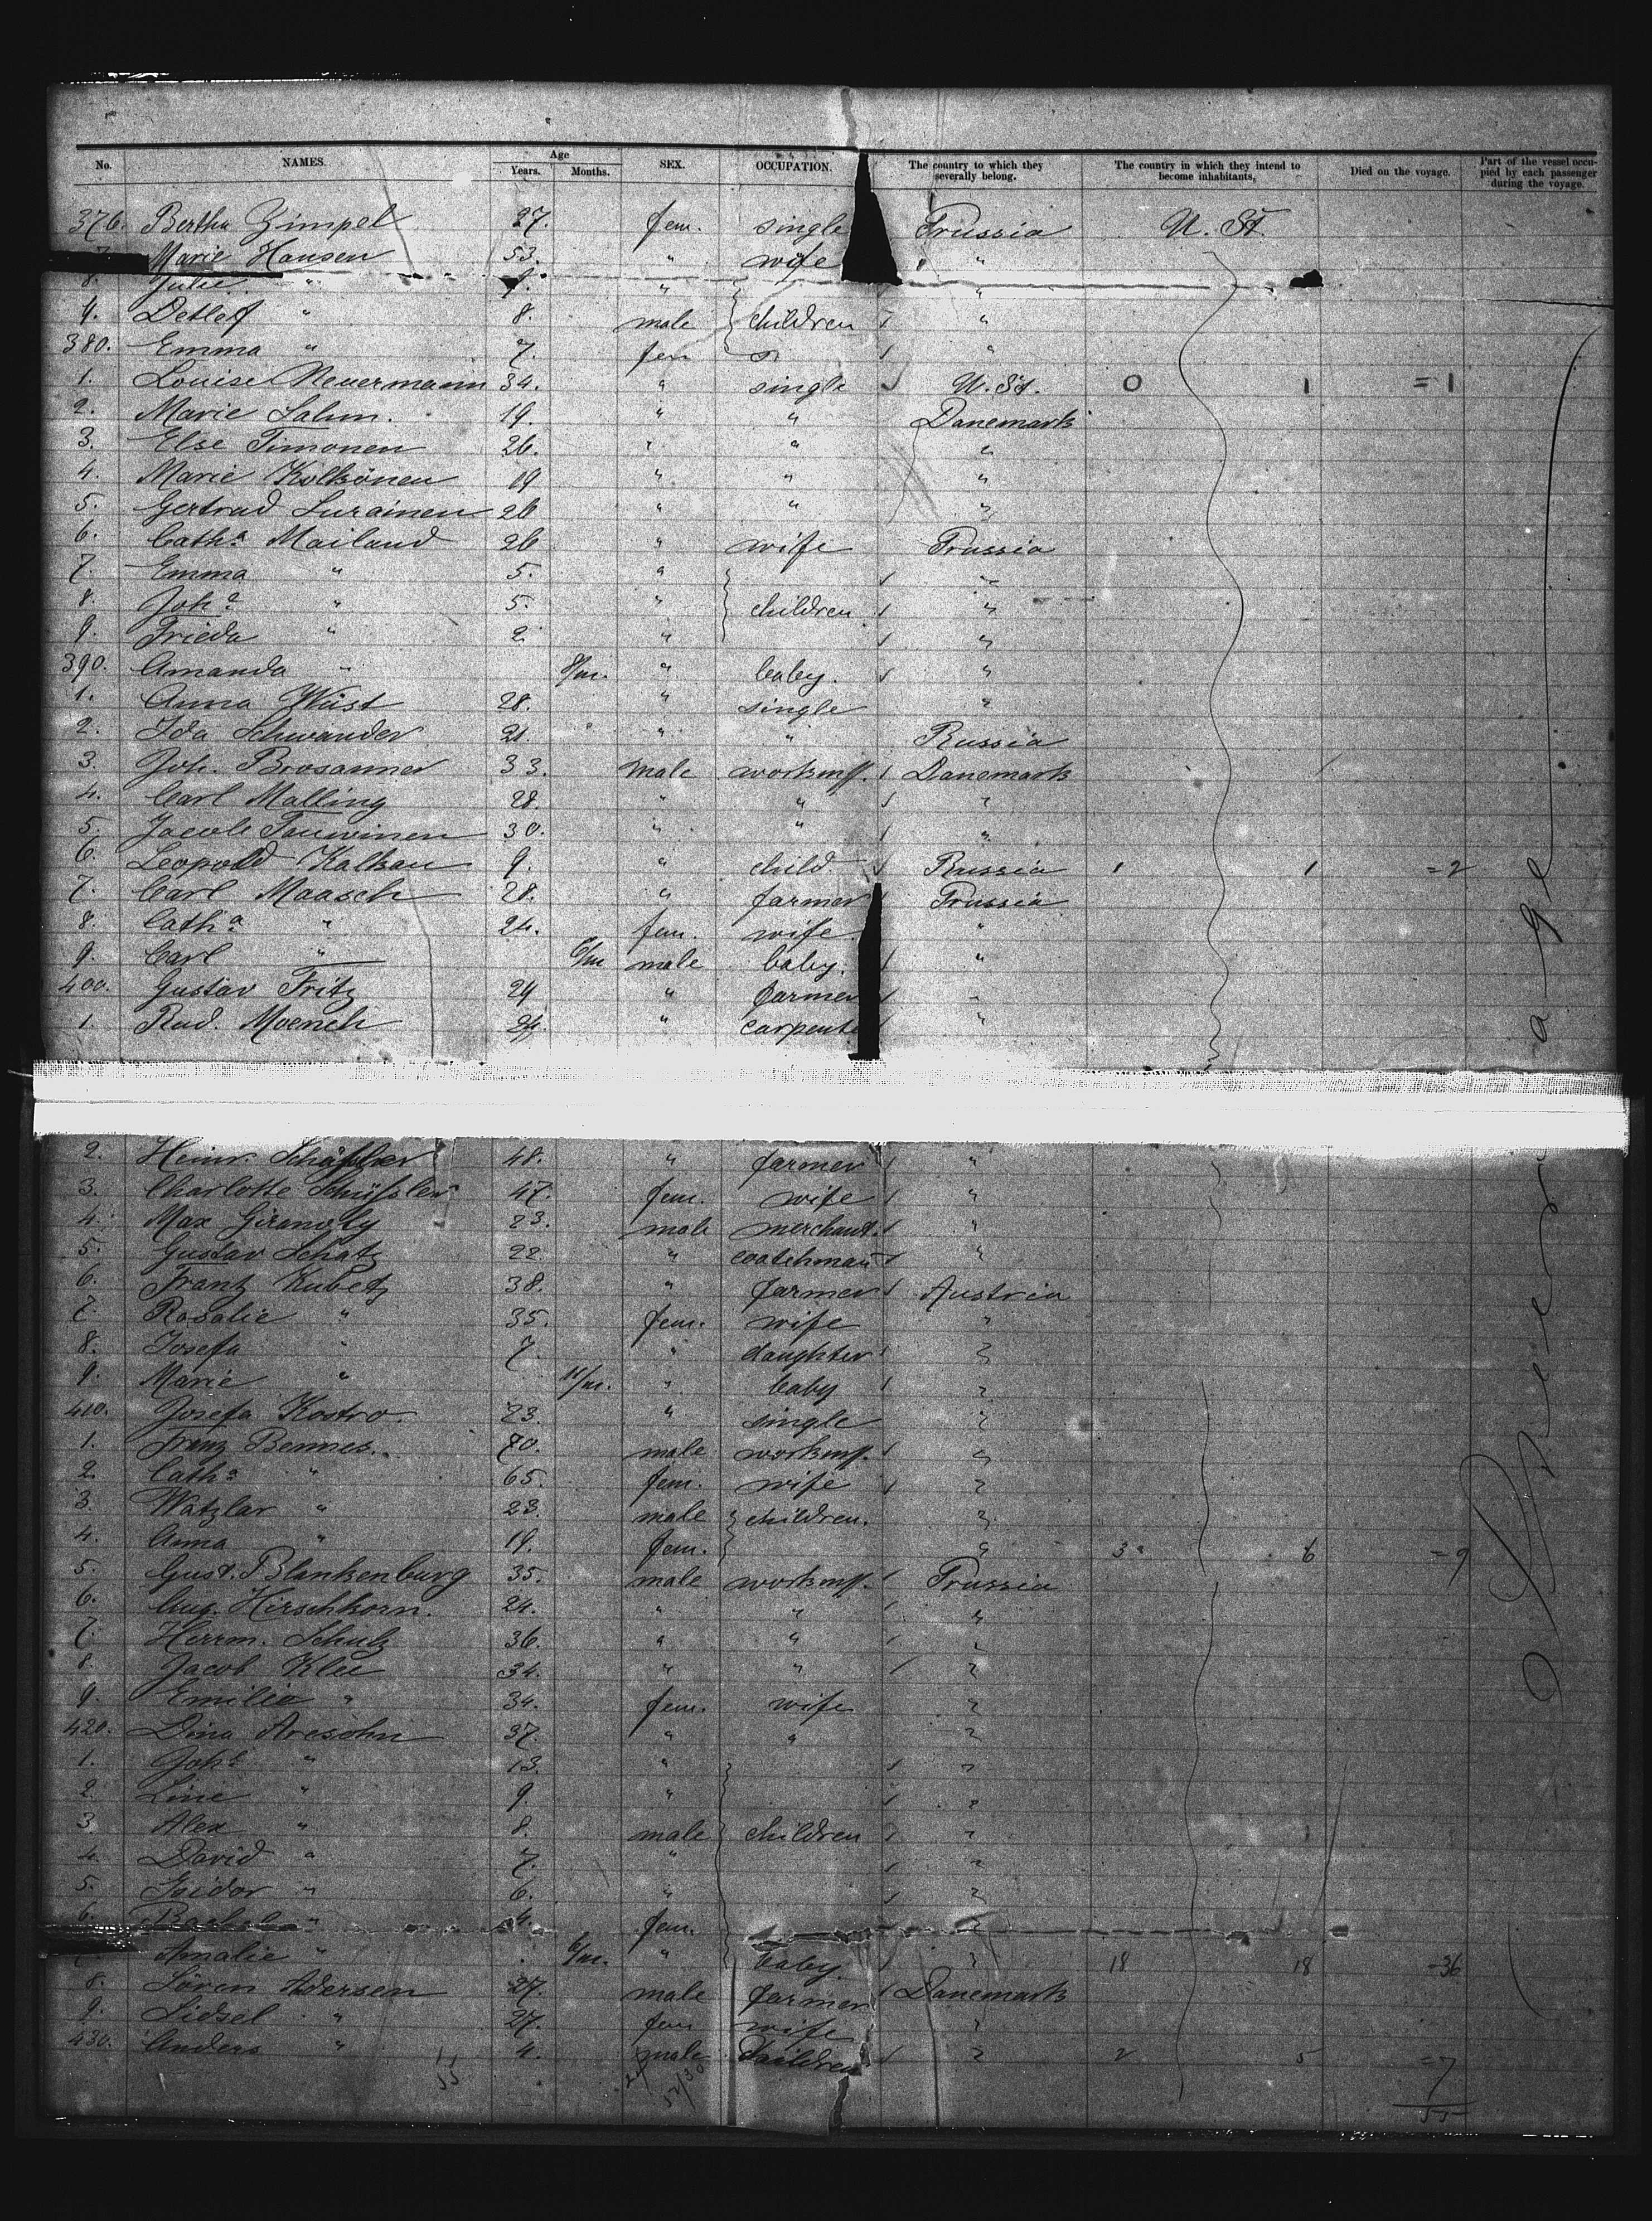 No. NAMES. Age Years. Months. SEX. OCCUPATION. The country to which they severally belong. The country in which they intend to become inhabitants, Died on the voyage. Part of the vessel occupied by each passenger during the voyage.
376. Bertha Zimpel 27. fem. single Prussia U. St.
7. Marie Hansen 53. " wife "
8. Julie " " "
9. Detlef " 8. male children "
380. Emma " 7. fem "
1. Louise Neuermann 34. " single U. St. 0 1 =1
2. Marie Lahm. 19. " " Danemark
3. Else Timonen 26. " " "
4. Marie Kolkönen 19 " " "
5. Gertrud Lurainen 26 " " "
6. Cath.a Mailand 26 " wife Prussia
7. Emma " 5. " "
8. Joh.a " 5. " children "
9. Frieda " 2. " "
390. Amanda " 8/m. " baby. "
1. Anna Wüst 28. " single "
2. Ida Schwander 21. " " Russia
3. Joh. Brosamer 33. male workmf. Danemark
4. Carl Malling 28. " " "
5. Jacob Tauwinen 30. " " "
6. Leopold Kalkau 9. " child Russia 1 1 =2
7. Carl Maasch 28. " farmer Prussia
8. Cath.a " 24. fem. wife. "
9. Carl " 6/m male baby. "
400. Gustav Fritz 24 " farmer "
1. Rud. Moench 24. " carpente "
2. Heinr. Schüssler 48. " farmer "
3. Charlotte Schüssler 47. fem. wife "
4. Max 23. male merchant. "
5. Gustav Schatz 22. " coatchman "
6. Franz Kubetz 38. " farmer Austria
7. Rosalie " 35. fem. wife "
8. Josefa " 7. " daughter "
9. Marie " 11/m. " baby "
410. Josefa Kostro. 23. " single "
1. Franz Bennes. 70. male workmf. "
2. Cath.a " 65. fem. wife "
3. Watzlar " 23. male children. "
4. Anna " 19. fem. " 3 6 =9
5. Gust. Blankenburg 35. male workmf. Prussia
6. Aug. Hirschkorn. 24. " " "
7. Herrm. Schulz 36. " " "
8. Jacob Klee 34. " " "
9. Emilie " 34. fem. wife "
420. Dina Aresohn 37. " " "
1. Joh.a " 13. " "
2. Line " 9. " "
3. Alex " 8. male children "
4. David " 7. " "
5. Isidor " 6. " "
6. " 4. fem. "
7. Amalie " 6/m. " baby. " 18 18 =36
8. Sören Adersen 27. male farmer Danemark
9. Sidsel " 27. fem wife "
430. Anders " 4. male children " 2 5 =7
55
55